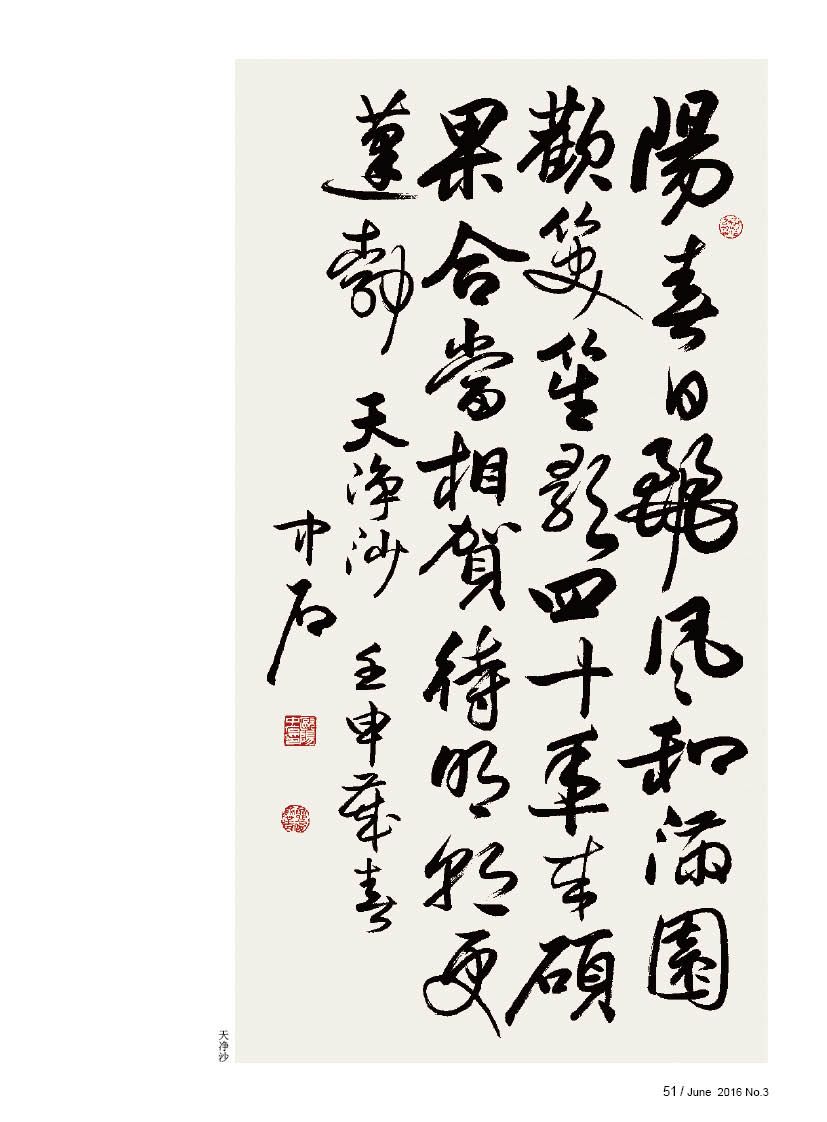 陽春日麗風和滿園
歡笑笙歌四十年來碩
果合當相賀待明朝更
蓬勃
天淨沙 壬申歲春
中石
天净沙
51 / June 2016 No.3